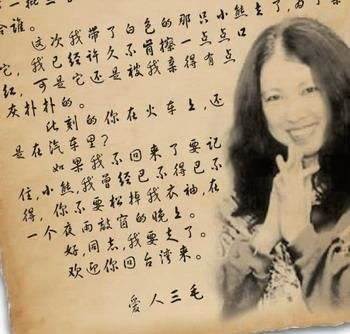 一批三
会谁。
这次我带了白色的那只小熊走了,为了亲
它,我已经许久不肯擦一点点口
红,可是它还是被我亲得有点
灰扑扑的。
此刻的你在火车上,还
是在汽车里?
如果我不回来了要记
住,小熊,我曾经已不得已不
得,你不要松掉我衣袖,在
一个夜雨敲窗的晚上。
好,同志,我要走了。
欢迎你回台湾来。
爱人三毛